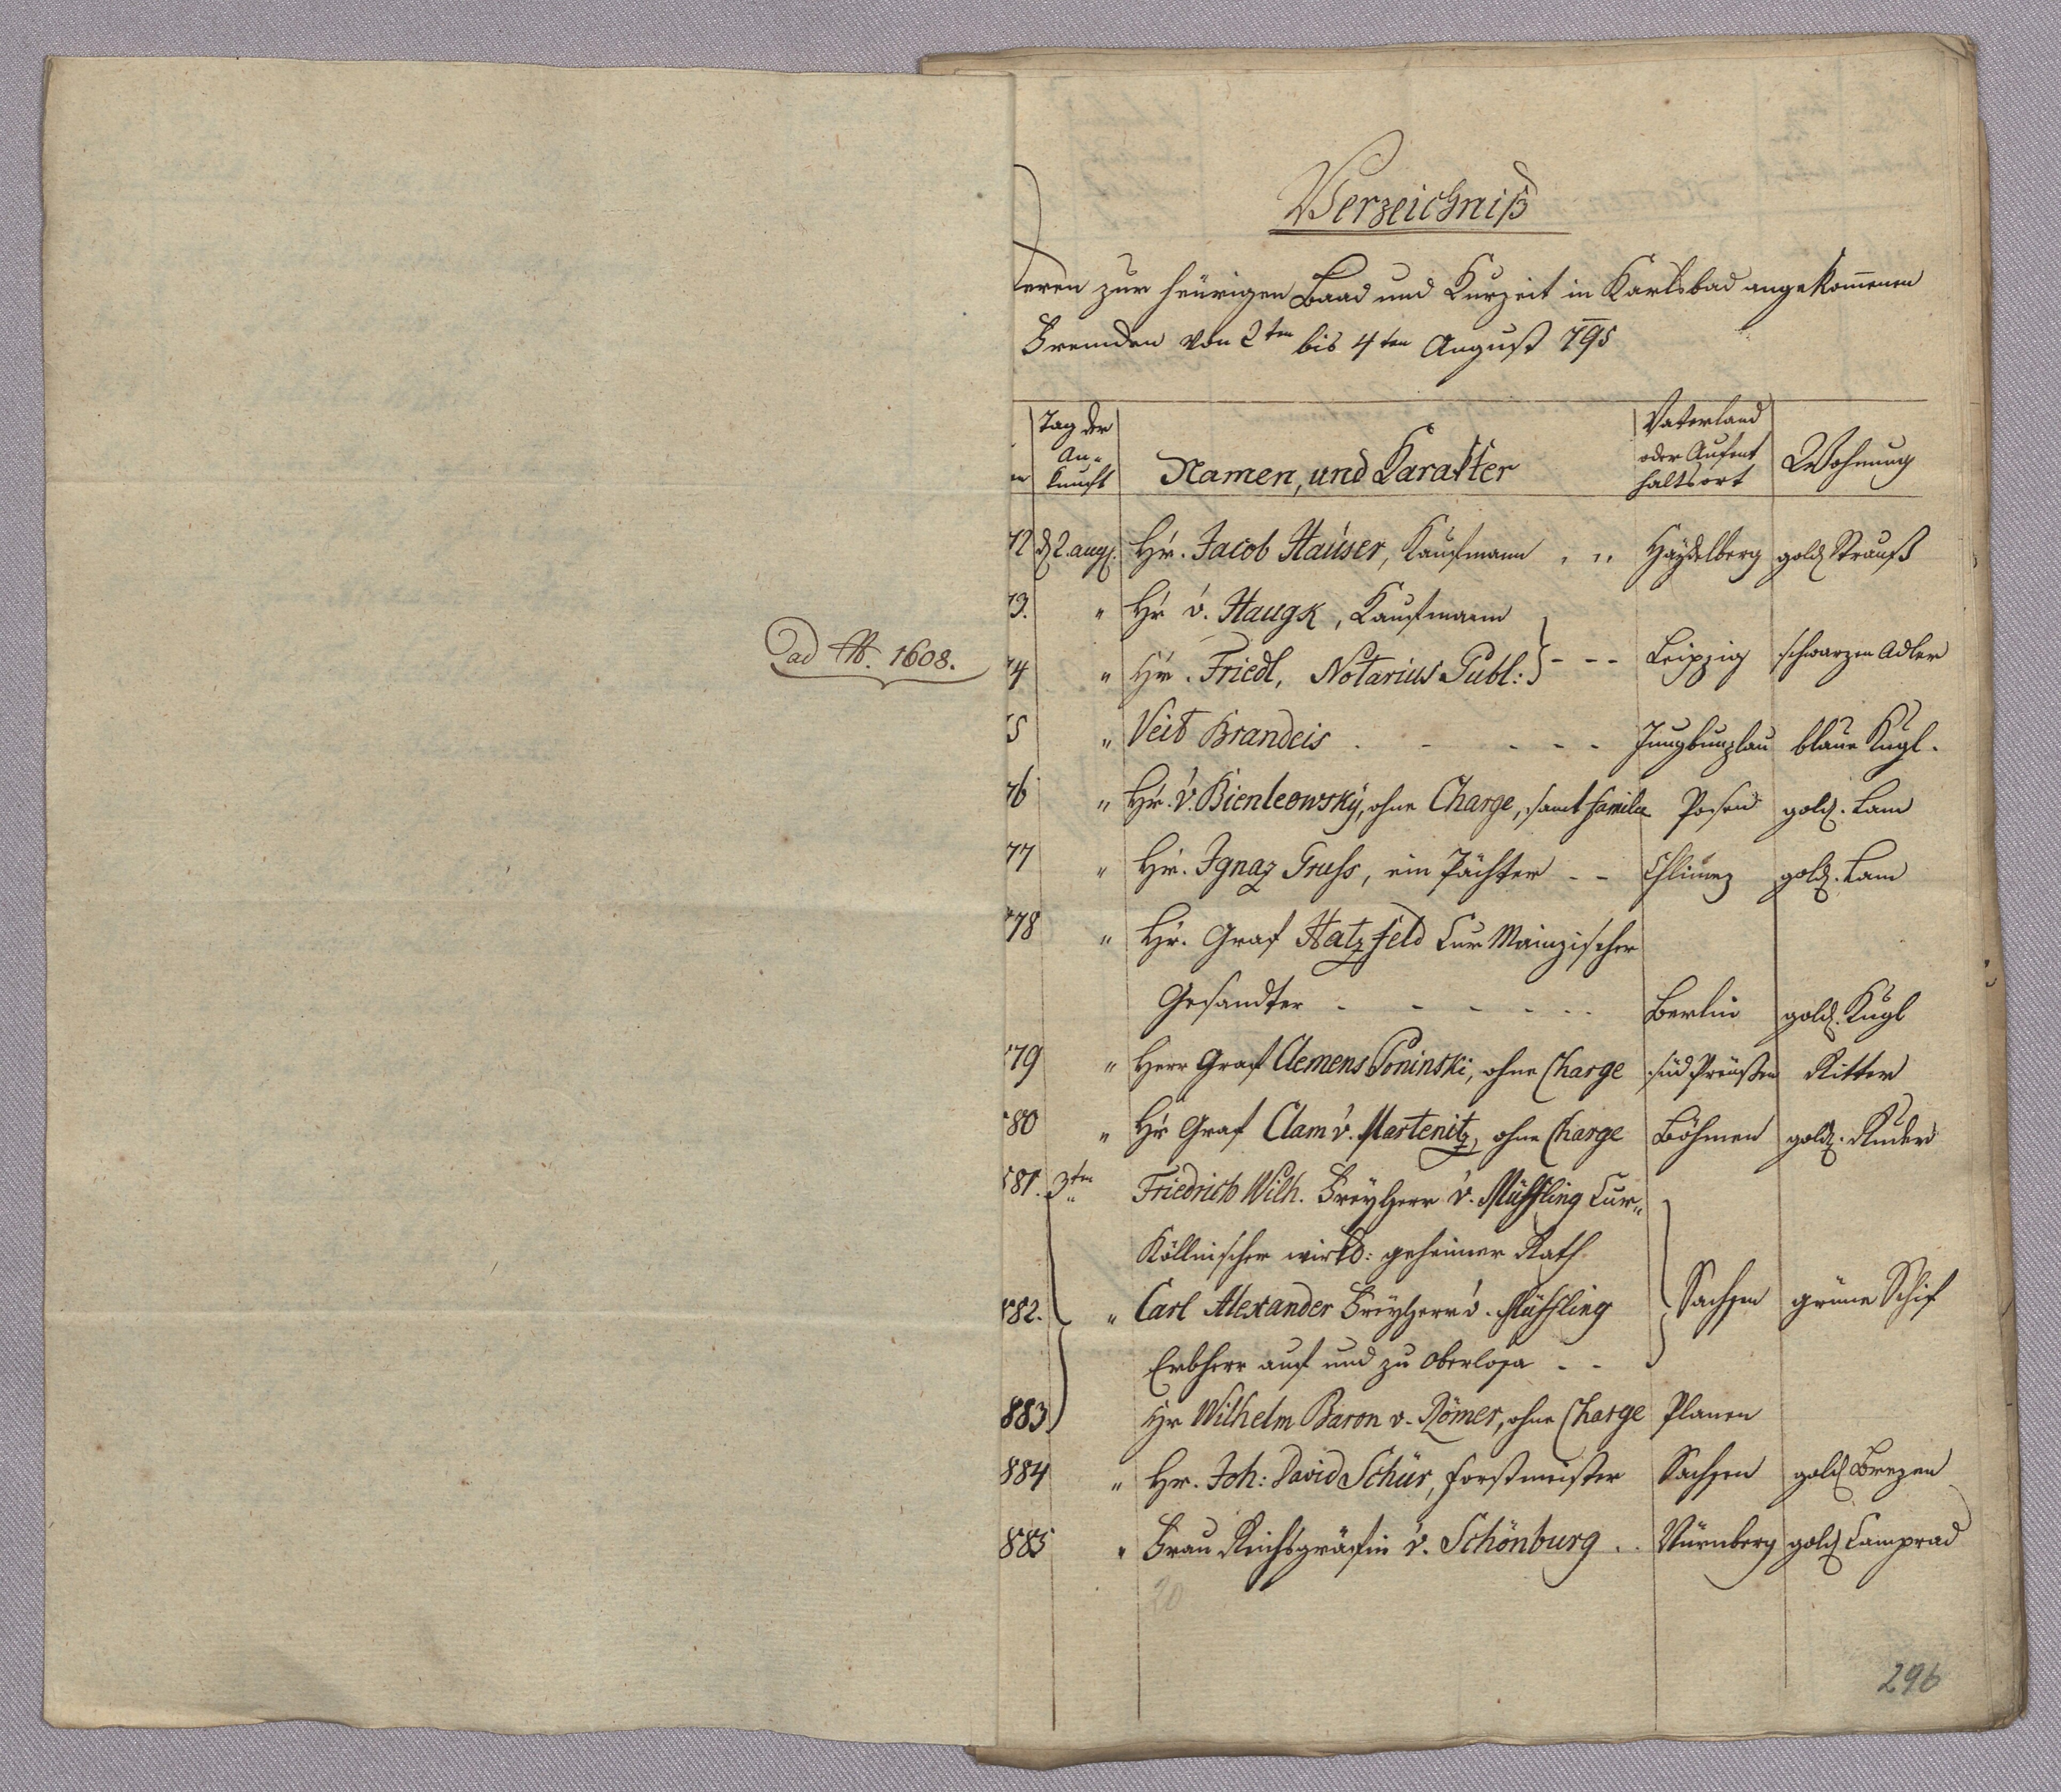 ad N. 1608.
Verzeichniß
deren zur heürigen Baad und Kurzeit in Karlsbad angekom̅enen
Fremden von 2ten bis 4ten August 795
Tag der An=kunft Namen, und Karakter Vaterland oder Aufent haltsort Wohnung
72 d. 2. aug. Hr. Jacob Haüser, Kaufmann Haÿdelberg gold Strauß
73. " Hr v. Haugk, Kaufmann
74 " Hr. Friedl, Notarius Publ: Leipzig schwarzen Adler
5 " Veit Brandeis Jungbunzlau blaue Kugl.
76 " Hr. v. Bienleowskÿ, ohne Charge, samt Familie Posen gold. Lam
77 " Hr. Ignaz Gruss, ein Pächter Chlumez gold. Lam
78 " Hr. Graf Hatzfeld Cur Mainzischer
Gesandter Berlin gold. Kugl
79 " Herr Graf Clemens Poninski, ohne Charge süd Preüßen Ritter
80 " Hr Graf Clam v. Martenitz, ohne Charge Böhmen gold. Ruder
881. 3ten Friedrich Wilh. Freÿherr v. Müffling Cur"
Köllnischer wirkl: geheimer Rath
882. " Carl Alexander Freÿherr v. Müffling Sachsen grüne Schif
Erbherr auf und zu Oberlosa
883 Hr Wilhelm Baron v. Römer, ohne Charge Planen
884 " Hr. Joh: David Schür, Forstmeister Sachsen gold Brezen
885 " Frau Reichsgräfin v. Schönburg Nürnberg gold Camprad
20
296